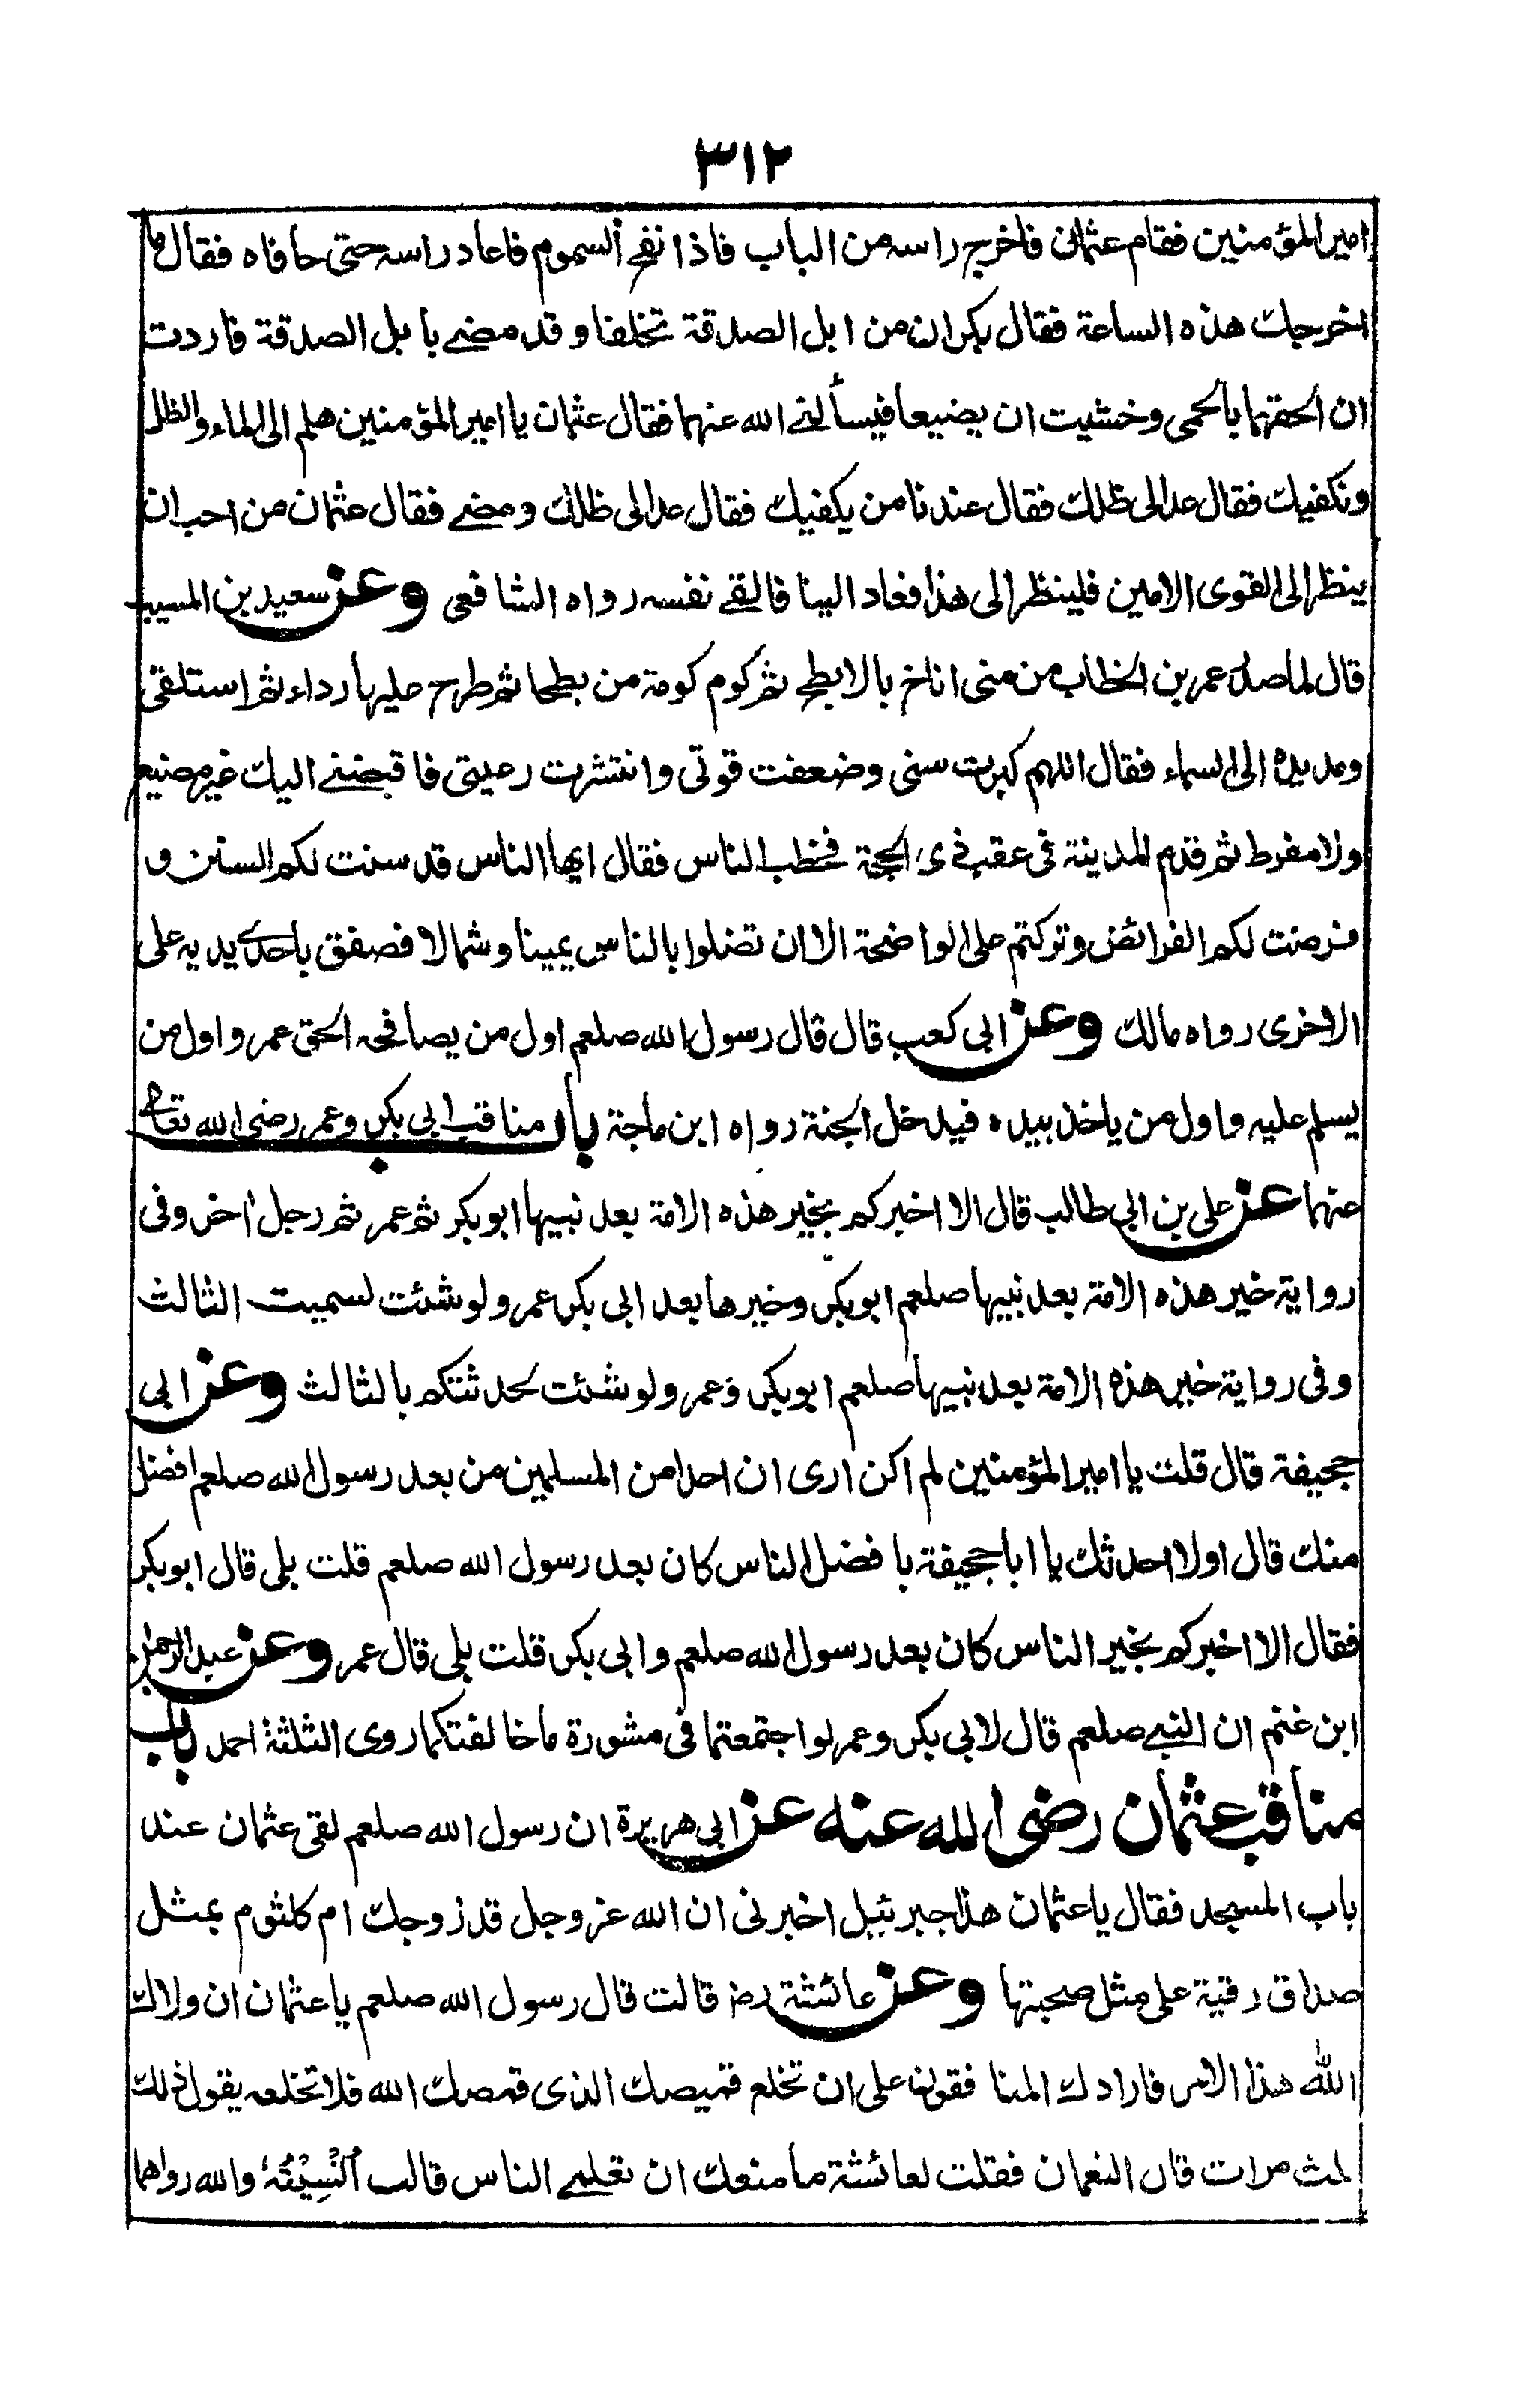 ٣١٢
امير المؤمنين فقام عثمان فاخرج راسه من الباب فاذا نفح السموم فاعاد راسه حتى حاذاه فقال ما
اخرجك هذه الساعة فقال بكران من ابل الصدقة تخلفا وقد مضے بابل الصدقة فاردت
ان الحقهما بالحمى وخشيت ان يضيعا فيسألنے الله عنهما فقال عثمان يا امير المؤمنين هلم الى الماء والظل
ونكفيك فقال عد الى ظلك فقال عندنا من يكفيك فقال عد الى ظلك ومضے فقال عثمان من احب ان
ينظر الى القوى الامين فلينظر الى هذا فعاد الينا فالقے نفسه رواه الشافعى وعن سعيد بن المسيب
قال لما صدر عمر بن الخطاب من منى اناخ بالابطح ثم كوم كومة من بطحا ثم طرح عليها رداء ثم استلقى
ومد يده الى السماء فقال اللهم كبرت سنى وضعفت قوتى وانتشرت رعيتى فاقبضنے اليك غير مضيع
ولا مفرط ثم قدم المدينة فى عقب ذى الحجة فخطب الناس فقال ايها الناس قد سنت لكم السنن و
فرضت لكم الفرائض وتركتم على الواضحة الا ان تضلوا بالناس يمينا وشمالا فصفق باحدے يديه على
الاخرى رواه مالك وعن ابى كعب قال قال رسول الله صلعم اول من يصافحه الحق عمر واول من
يسلم عليه واول من ياخذ بيده فيدخل الجنة رواه ابن ماجة باب مناقب ابى بكر وعمر رضى الله تعالے
عنهما عن على بن ابى طالب قال الا اخبركم بخير هذه الامة بعد نبيها ابو بكر ثم عمر ثم رجل اخر وفى
رواية خير هذه الامة بعد نبيها صلعم ابو بكر وخيرها بعد ابى بكر عمر ولو شئت لسميت الثالث
وفى رواية خير هذه الامة بعد نبيها صلعم ابو بكر وعمر ولو شئت لحدثتكم بالثالث وعن ابى
جحيفة قال قلت يا امير المؤمنين لم اكن ارى ان احدا من المسلمين من بعد رسول الله صلعم افضل
منك قال اولا احدثك يا ابا جحيفة بافضل الناس كان بعد رسول الله صلعم قلت بلى قال ابو بكر
فقال الا اخبركم بخير الناس كان بعد رسول الله صلعم وابى بكر قلت بلى قال عمر وعن عبد الرحمن
ابن غنم ان النبے صلعم قال لابى بكر وعمر لو اجتمعتما فى مشورة ما خالفتكما روى الثلثة احمد باب
مناقب عثمان رضى الله عنه عن ابى هريرة ان رسول الله صلعم لقى عثمان عند
باب المسجد فقال يا عثمان هذا جبرئيل اخبرنى ان الله عز وجل قد زوجك ام كلثوم بمثل
صداق رقية على مثل صحبتها وعن عائشة رض قالت قال رسول الله صلعم يا عثمان ان ولاك
الله هذا الامر فارادك المنافقون على ان تخلع قميصك الذى قمصك الله فلا تخلعه يقول ذلك
ثلث مرات قال النعمان فقلت لعائشة ما منعك ان تعلمے الناس قالت اُنْسِيْتُهٗ والله رواهما